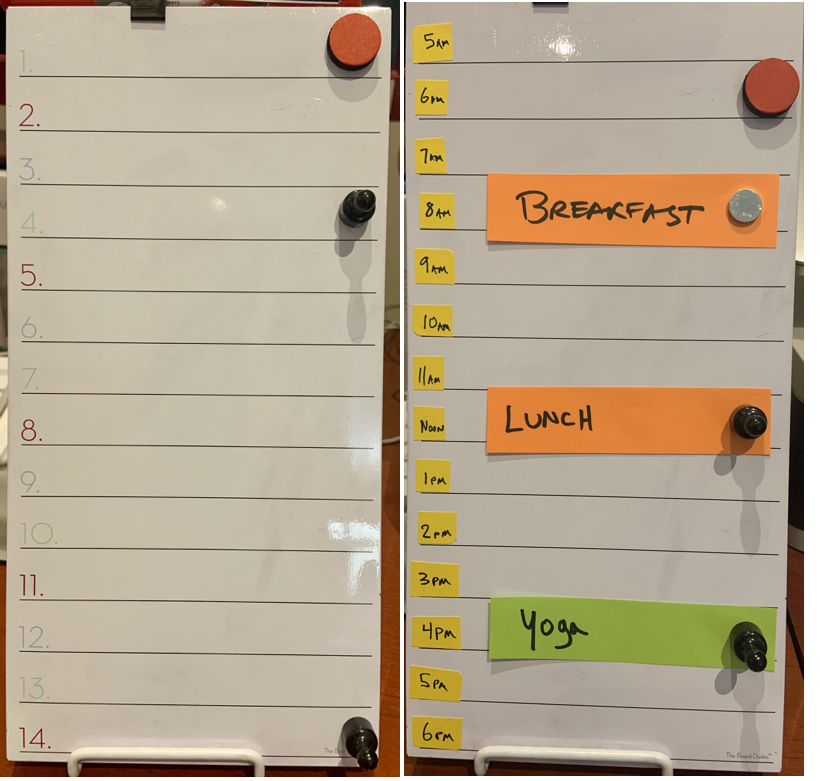 1.
2.
3.
4.
5.
6.
7.
8.
9.
10.
11.
12.
13.
14.
5AM
6AM
7AM
8AM BREAKFAST
9AM
10AM
11AM
NOON LUNCH
1PM
2PM
3PM
4PM Yoga
5PM
6PM
The Board Dudes™